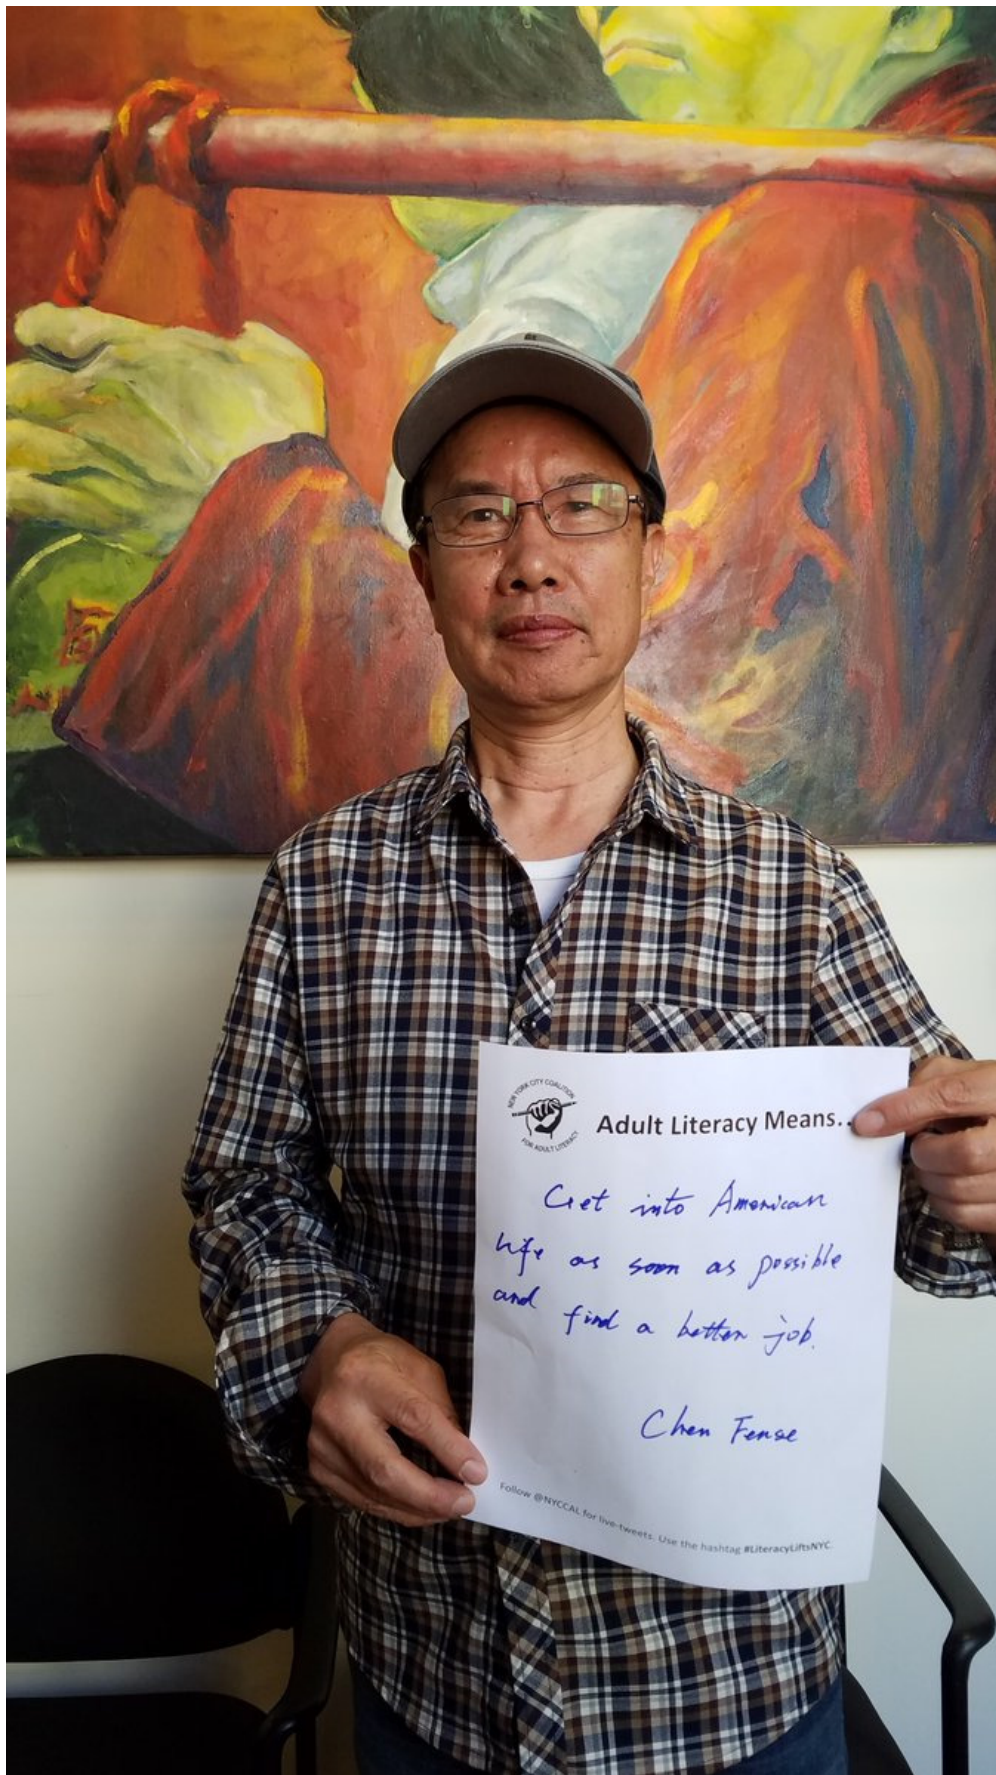 NEW YORK CITY COALITION
FOR ADULT LITERACY
Adult Literacy Means..
Get into American
life as soon as possible
and find a better job.
Chen Fense
Follow @NYCCAL for live-tweets. Use the hashtag #LiteracyLiftsNYC.